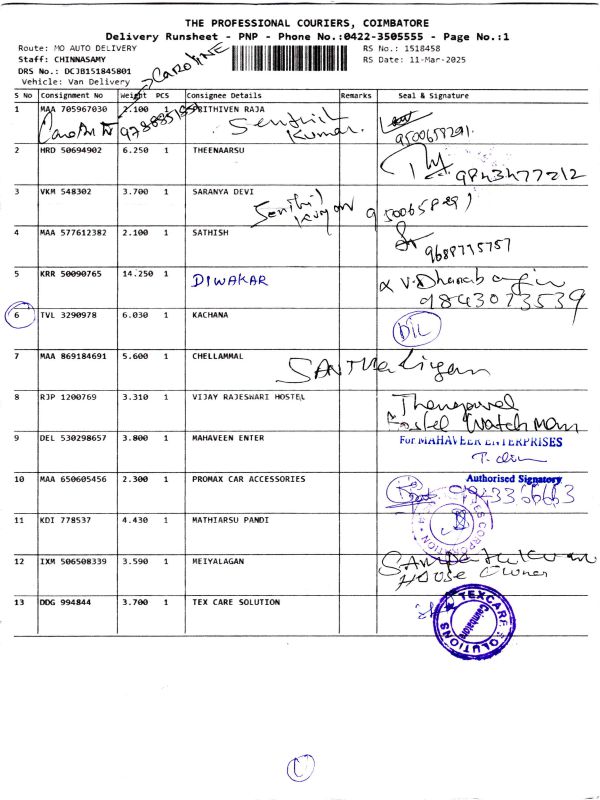 THE PROFESSIONAL COURIERS, COIMBATORE
Delivery Runsheet - PNP - Phone No.:0422-3505555 - Page No.:1
Route: MO AUTO DELIVERY RS No.: 1518458
Staff: CHINNASAMY RS Date: 11-Mar-2025
DRS No.: DCJB151845801 CAROLINE
Vehicle: Van Delivery
S No Consignment No Weight PCS Consignee Details Remarks Seal & Signature
1 MAA 705967030 2.100 1 RITHIVEN RAJA
Senthil Kumar. 9500658291.
2 HRD 50694902 6.250 1 THEENAARSU
9843477212
3 VKM 548302 3.700 1 SARANYA DEVI
Senthil Kumar 9500658291
4 MAA 577612382 2.100 1 SATHISH
9688775757
5 KRR 50090765 14.250 1 DIWAKAR
9843073539
6 TVL 3290978 6.030 1 KACHANA
D/L
7 MAA 869184691 5.600 1 CHELLAMMAL
8 RJP 1200769 3.310 1 VIJAY RAJESWARI HOSTEL
Thangavel
Hostel Watchman
9 DEL 530298657 3.800 1 MAHAVEEN ENTER
For MAHAVEER ENTERPRISES
Authorised Signatory
10 MAA 650605456 2.300 1 PROMAX CAR ACCESSORIES
11 KDI 778537 4.430 1 MATHIARSU PANDI
12 IXM 506508339 3.590 1 MEIYALAGAN
House Owner
13 DDG 994844 3.700 1 TEX CARE SOLUTION
TEXCARE SOLUTIONS
Coimbatore